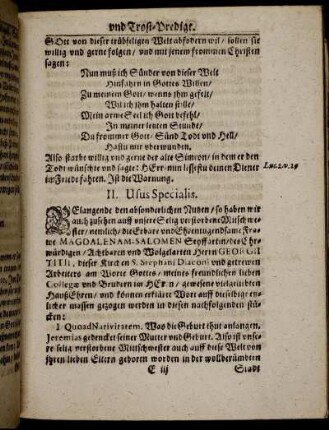 vnd Trost-Predigt.
GOtt von dieser trübseligen Welt abfodern wil/ sollen sie
willig vnd gerne folgen/ vnd mit jenem frommen Christen
sagen:
Nun muß ich Sünder von dieser Welt
Hinfahrn in Gottes Willen/
Zu meinem Gott/ wenns jhm gefelt/
Wil ich jhm halten stille/
Mein arme Seel ich Gott befehl/
In meiner letzten Stunde/
Du frommer Gott/ Sünd Todt vnd Hell/
Hastu mir vberwunden.
Also starbe willig vnd gerne der alte Simeon/ in dem er den
Todt wünschte vnd sagte: HErr/ nun lessestu deinen Diener
im Fried fahren. Ist die Warnung.
Luc.2.v.29
II. Usus Specialis.
BElangende den absonderlichen Nutzen/ so haben wir
auch zusehen auff vnsere Selig verstorbene Mitschwe-
ster/ nemlich/ die Erbare vnd Ehrentugendsame Fra-
we MAGDALENAM-SALOMEN Stoffartin/ des Ehr-
würdigen/ Achtbaren vnd Wolgelarten Herren GEORGI
TITII, dieser Kirchen S. Stephani Diaconi vnd getrewen
Arbeiters am Worte Gottes/ meines freundlichen lieben
Collegæ vnd Brudern im HErrn/ gewesene vielgeliebten
HaußEhren/ vnd können erklärte Wort auff dieselbige etz-
licher massen gezogen werden in diesen nachfolgenden stü-
cken:
1 Quoad Nativitatem. Was die Geburt thut anlangen,
Jeremias gedencket seiner Mutter vnd Geburt. Also ist vnse-
re selig verstorbene Mittschwester auch auff diese Welt von
jhren lieben Eltern geboren worden in der wolberümbten
E iij
Stadt